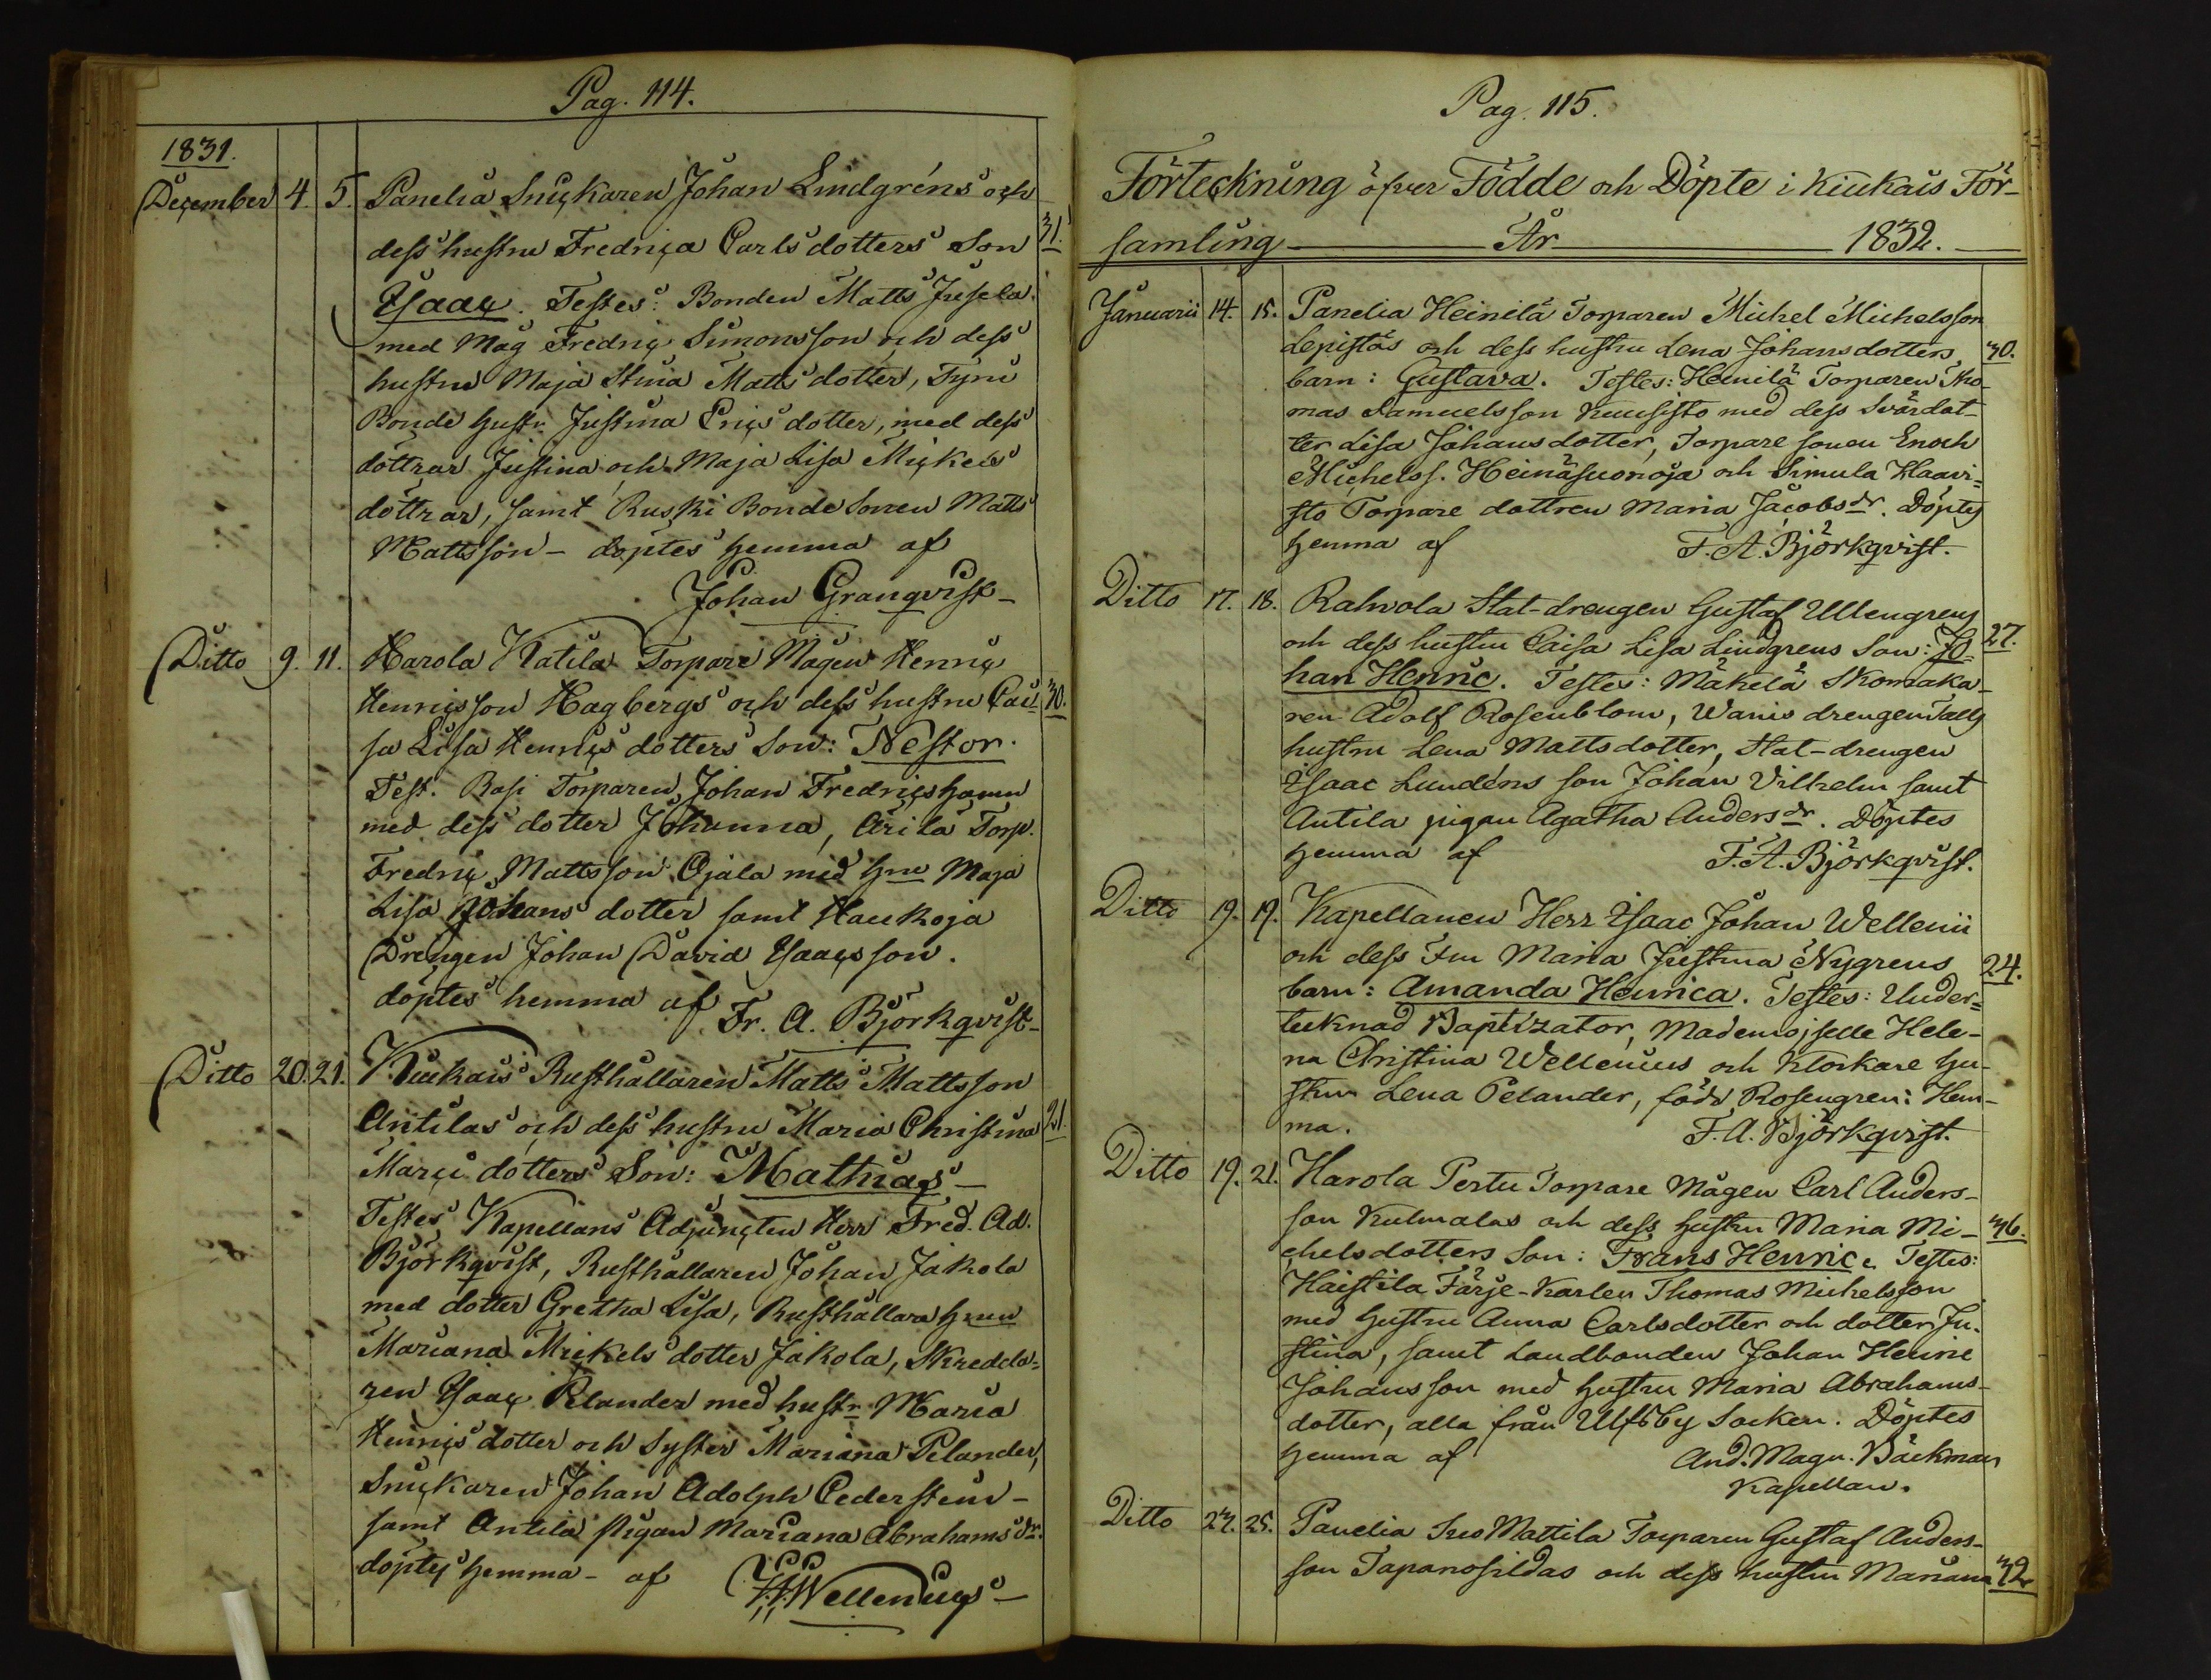 Pag. 114.
1831.
December 4. 5. Panelia Snickaren Johan Lindgréns och
dess hustru Fredrica Carls dotters Son 31.
Isaac. Testes: Bonden Matts Jusela
med Måg Fredric Simonsson och dess
hustru Maja Stina Matts dotter,
Bonde hustr. Justina Erics dotter, med dess
döttrar Justina och Maja Lisa Mickels
döttrar, samt Ruski Bonde Sonen Matts
Mattsson – döptes hemma af
Johan Granqvist –
Ditto 9. 11. Harola Katila Torpare Mågen Henric
Henricsson Hagbergs och dess hustru Cai- 30.
sa Lisa Henrics dotters Son: Nestor.
Test. Rasi Torparen Johan Fredricshamn
med dess dotter Johanna, Arila Torp.
Fredric Mattsson Ojala med hru Maja
Lisa Johans dotter samt Haukoja
Drengen Johan David Isaacsson.
döptes hemma af Fr. A. Björkqvist –
Ditto 20. 21. Kiukais Rusthållaren Matts Mattsson
Antilas och dess hustru Maria Christina 21.
Marci dotters Son: Mathias –
Testes Kapellans Adjuncten Herr Fred. Ad.
Björkqvist, Rusthållaren Johan Jakola
med dotter Gretha Lisa, Rusthållare hrun
Mariana Mickels dotter Jakola, Skredda-
ren Isaac Pelander med hustr. Maria
Henrics dotter och Syster Mariana Pelander,
Snickaren Johan Adolph Cederstein –
samt Antila pigan Mariana Abrahams dr.
döptes hemma – af Wellenius –
Pag. 115.
Förteckning öfver Födde och Döpte i Kiukais För-
samling År 1832.
Januarii 14. 15. Panelia Heinilä Torparen Michel Michelsson
Lepistös och dess hustru Lena Johansdotters 30.
barn: Gustava. Testes: Heinilä Torparen Tho-
mas Samuelsson Kuusisto med dess Svärdot-
ter Lisa Johansdotter, Torpare sonen Enoch
Michelss. Heinäsuonoja och Simula Haavi-
sto Torpare dottren Maria Jacobsdr. Döptes
hemma af F. A. Björkqvist.
Ditto 17. 18. Rahvola Stat-drengen Gustaf Ullengrens
och dess hustru Caisa Lisa Lindgrens Son: Jo- 27.
han Henric. Testes: Mäkelä Skomaka-
ren Adolf Rosenblom, Wanis drengen Talls
hustru Lena Mattsdotter, Stat-drengen
Isaac Lundéns son Johan Vilhelm samt
Antila pigan Agatha Andersdr. Döptes
hemma af F. A. Björkqvist.
Ditto 19. 19. Kapellanen Herr Isaac Johan Wellenii
och dess Fru Maria Justina Nygrens 24.
barn: Amanda Henrica. Testes: Under-
tecknad Baptizator, Mademoiselle Hele-
na Christina Wellenius och Klockare hu-
strun Lena Pelander, född Rosengren: Hem-
ma. F. A. Björkqvist.
Ditto 19. 21. Harola Pertu Torpare Mågen Carl Anders-
son Kulmalas och dess hustru Maria Mi- 36.
chelsdotters Son: Frans Henric. Testes:
Haistila Färje-Karlen Thomas Michelsson
med hustru Anna Carlsdotter och dotter Ju-
stina, samt Landbonden Johan Henric
Johansson med hustru Maria Abrahams-
dotter, alla från Ulfsby Socken. Döptes
hemma af And. Magn. Bäckman
Kapellan.
Ditto 23. 25. Panelia Iso Mattila Torparen Gustaf Anders-
son Tapanosildas och dess hustru Mariana 32.